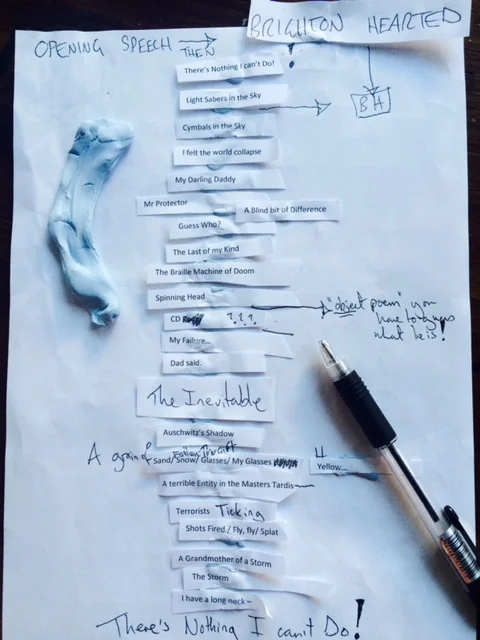 BRIGHTON HEARTED
OPENING SPEECH → THEN
There's Nothing I can't Do!
!
Light Sabers in the Sky
BH
Cymbals in the Sky
I felt the world collapse
My Darling Daddy
Mr Protector
A Blind bit of Difference
Guess Who?
The Last of my Kind
The Braille Machine of Doom
Spinning Head
"object poem" you
have to guess
what he is!
CD ???
My Failure...
Dad said.
The Inevitable
Auschwitz's Shadow
A grain of Sand/Snow/ Glasses/ My Glasses
Yellow...
A terrible Entity in the Masters Tardis
Terrorists Ticking
Shots Fired / Fly, fly/ Splat
A Grandmother of a Storm
The Storm
I have a long neck –
There's Nothing I can't Do!